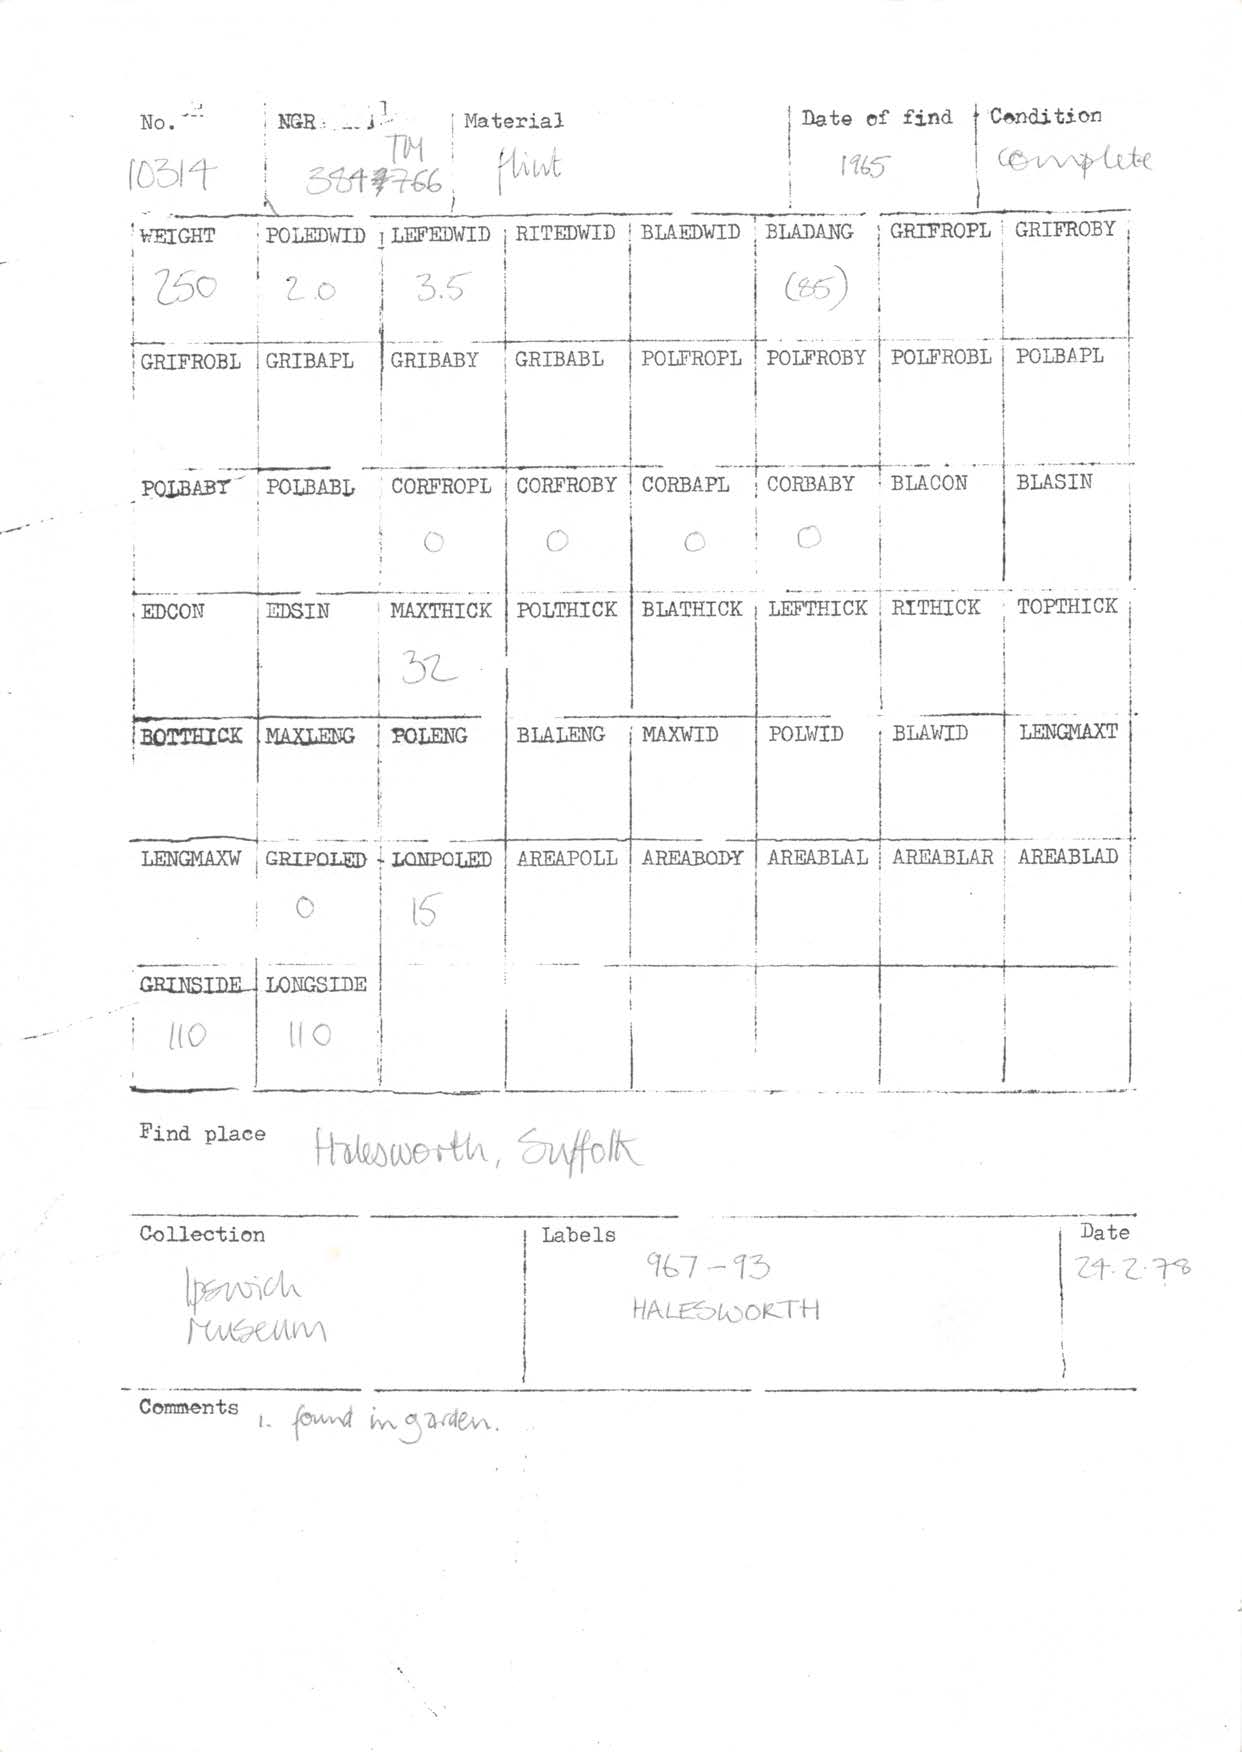 No. NGR: Material Date of find Condition
10314 TM 384 766 flint 1965 complete
WEIGHT POLEDWID LEFEDWID RITEDWID BLAEDWID BLADANG GRIFROPL GRIFROBY
250 2.0 3.5 (85)
GRIFROBL GRIBAPL GRIBABY GRIBABL POLFROPL POLFROBY POLFROBL POLBAPL
POLBABY POLBABL CORFROPL CORFROBY CORBAPL CORBABY BLACON BLASIN
0 0 0 0
EDCON EDSIN MAXTHICK POLTHICK BLATHICK LEFTHICK RITHICK TOPTHICK
32
BOTTHICK MAXLENG POLENG BLALENG MAXWID POLWID BLAWID LENGMAXT
LENGMAXW GRIPOLED LONPOLED AREAPOLL AREABODY AREABLAL AREABLAR AREABLAD
0 15
GRINSIDE LONGSIDE
110 110
Find place Halesworth, Suffolk
Collection Labels Date
Ipswich Museum 967-93 24.2.78
HALESWORTH
Comments 1. found in garden.